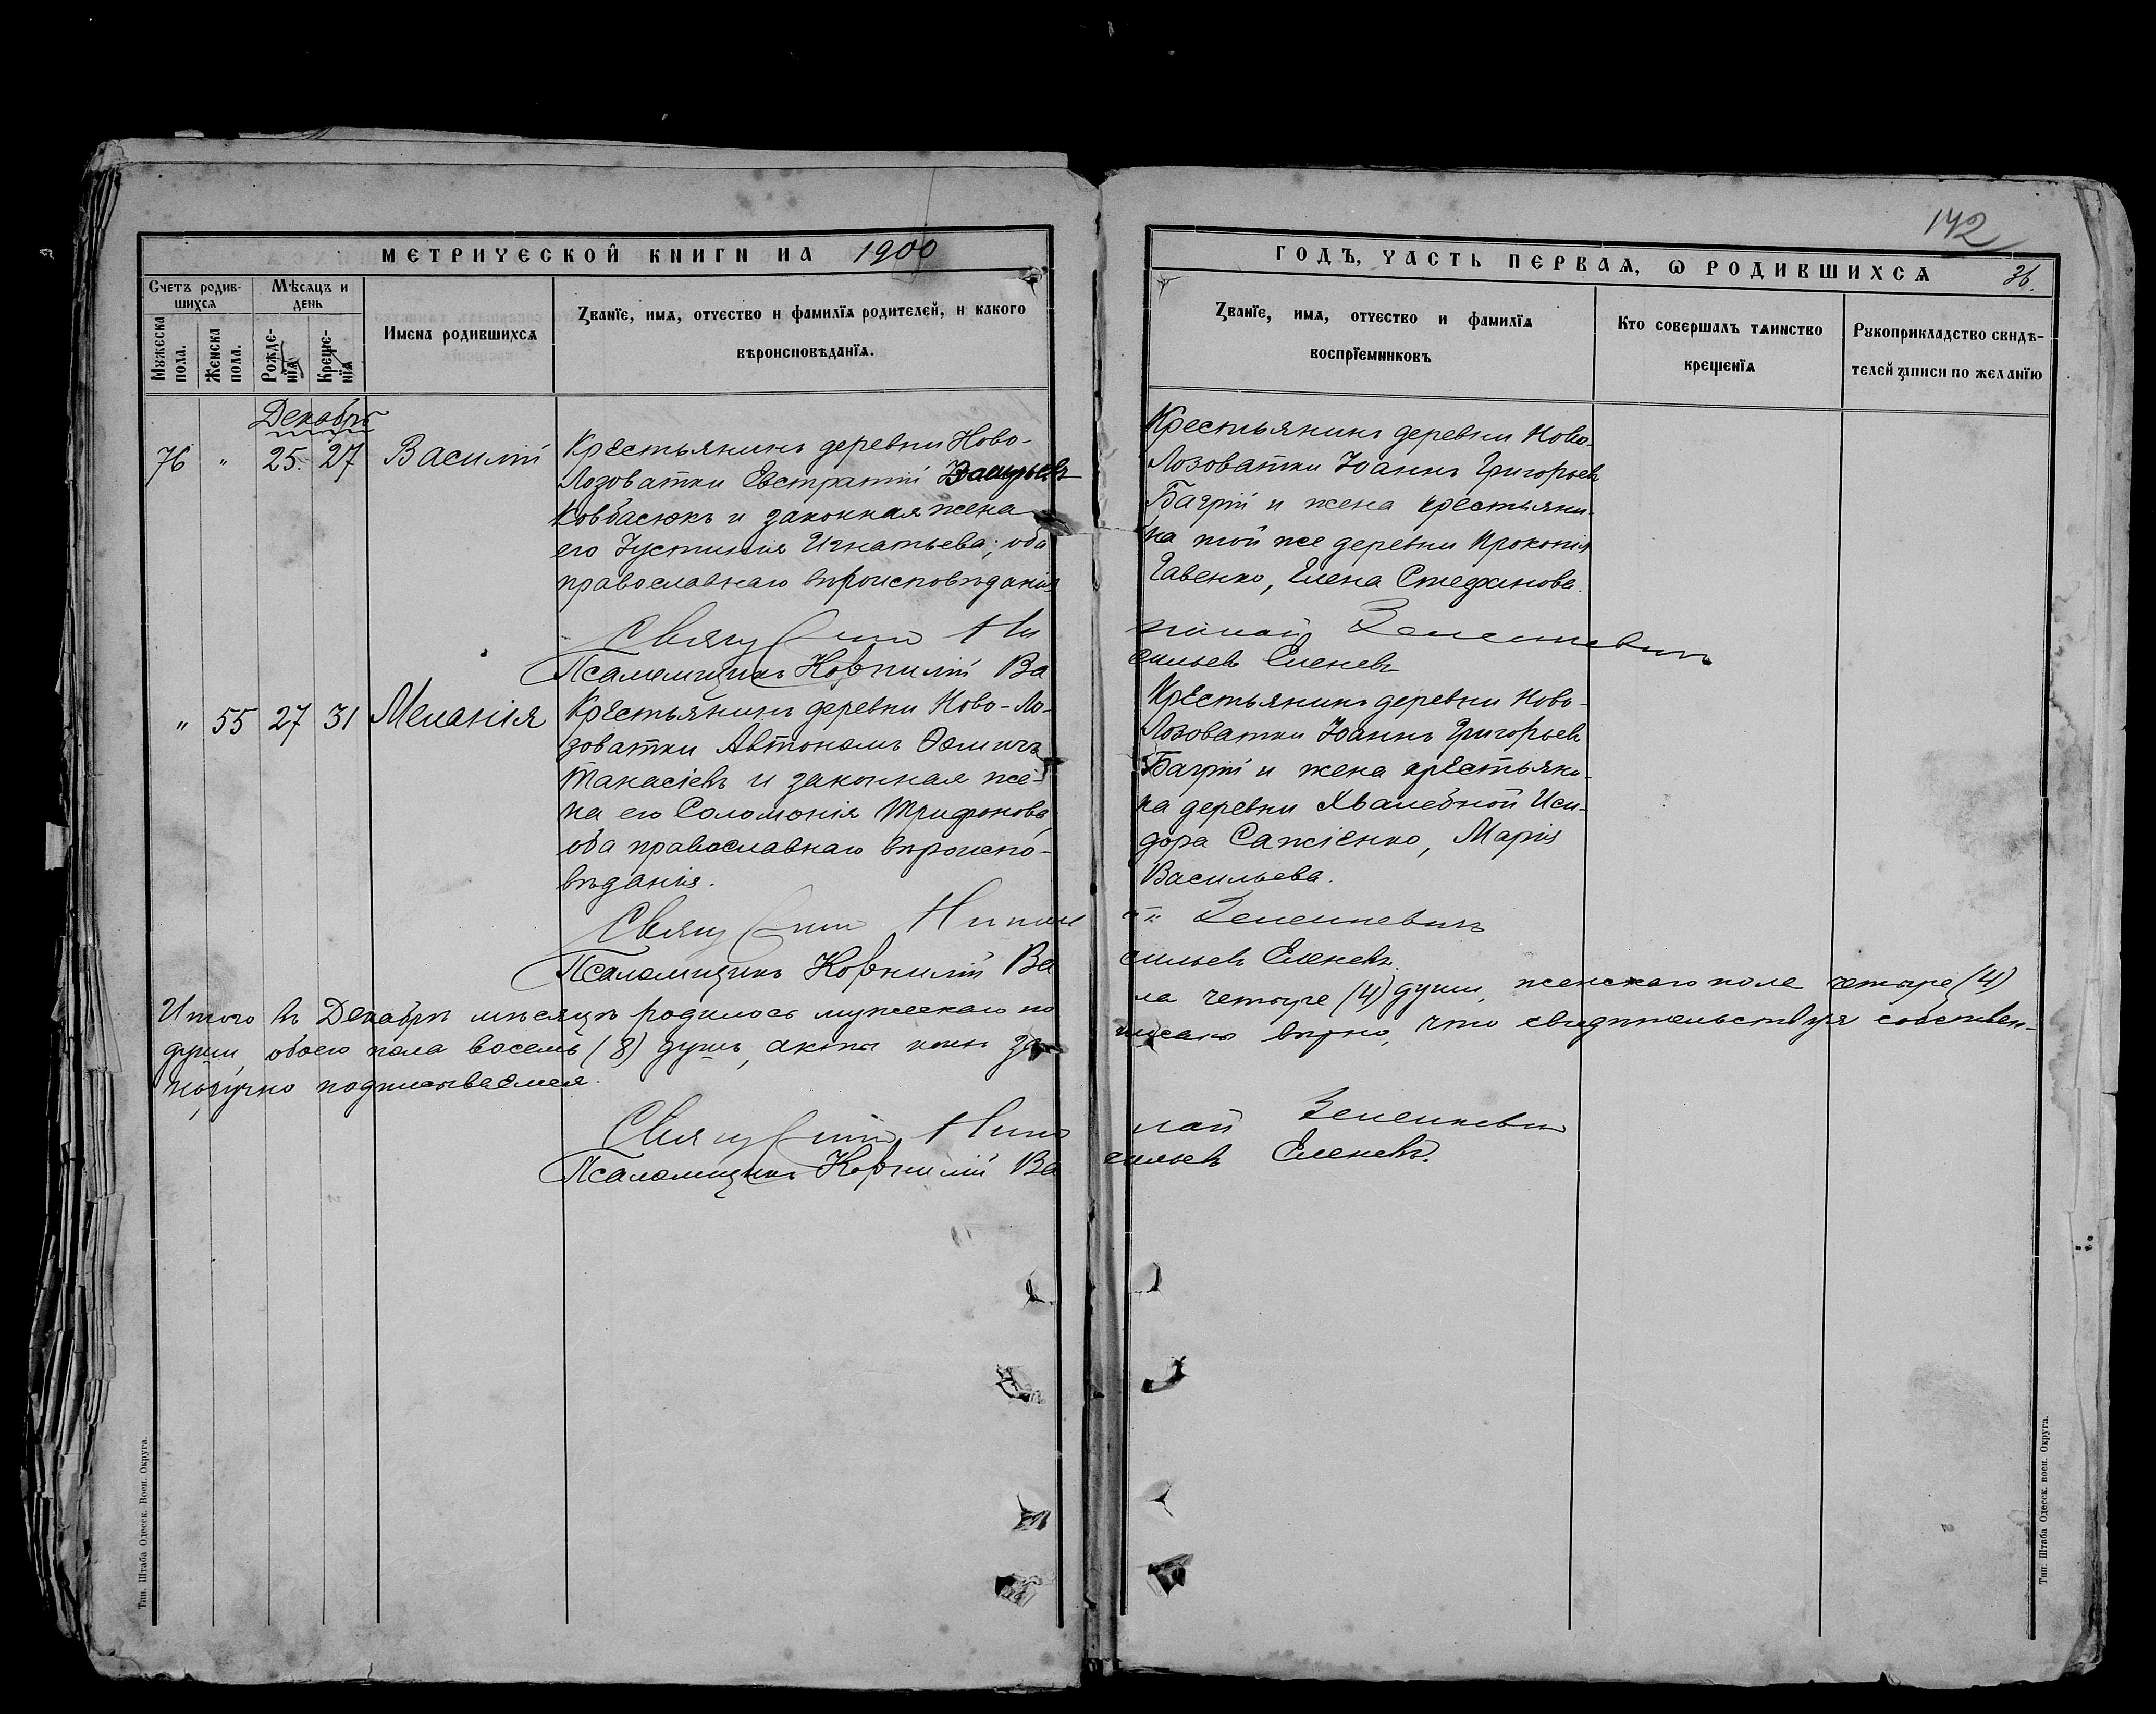 142
МЕТРИЧЕСКОЙ КНИГИ НА 1900
ГОДЪ, ЧАСТЬ ПЕРВАЯ, Ѡ РОДИВШИХСЯ
36.
Счетъ родив-
шихся
Мужеска
пола.
Женска
пола.
Мѣсяцъ и
день
Рожде-
нія
Креще-
нія
Имена родившихся
Званіе, имя, отчество и фамилія родителей, и какого
вѣроисповѣданія.
Званіе, имя, отчество и фамилія
воспріемниковъ
Кто совершалъ таинство
крещенія
Рукоприкладство свидѣ-
телей записи по желанію
Декабрь
76 " 25. 27 Василій
Крестьянинъ деревни Ново-
Лозоватки Евстратій
Ковбасюкъ и законная жена
его Іустинія Игнатьева; оба
православнаго вѣроисповѣданія
Крестьянинъ деревни Ново-
Лозоватки Іоаннъ Григорьевъ
Багрій и жена крестьяни-
на той же деревни Прокопія
Гавенко, Елена Стефанова.
Священникъ Николай Зелинкевичъ
Псаломщикъ Корнилій Васильевъ Еленевъ
" 55 27 31 Меланія
Крестьянинъ деревни Ново-Ло-
зоватки Автономъ Ѳомичъ
Танасіевъ и законная же-
на его Соломонія Трифонова,
оба православнаго вѣроиспо-
вѣданія.
Крестьянинъ деревни Ново-
Лозоватки Іоаннъ Григорьевъ
Багрій и жена крестьяни-
на деревни Хвалебной Иси-
дора Сажіенко, Марія
Васильева.
Священникъ Николай Зелинкевичъ
Псаломщикъ Корнилій Васильевъ Еленевъ.
Итого въ Декабрѣ мѣсяцѣ родилось мужескаго пола четыре (4) души, женскаго пола четыре (4)
души, обоего пола восемь (8) душъ, акты коихъ записаны вѣрно, что свидѣтельствуя собствен-
норучно подписываемся.
Священникъ Николай Зелинкевичъ
Псаломщикъ Корнилій Васильевъ Еленевъ.
Тип. Штаба Одесск. Воен. Округа.
Тип. Штаба Одесск. воен. Округа.